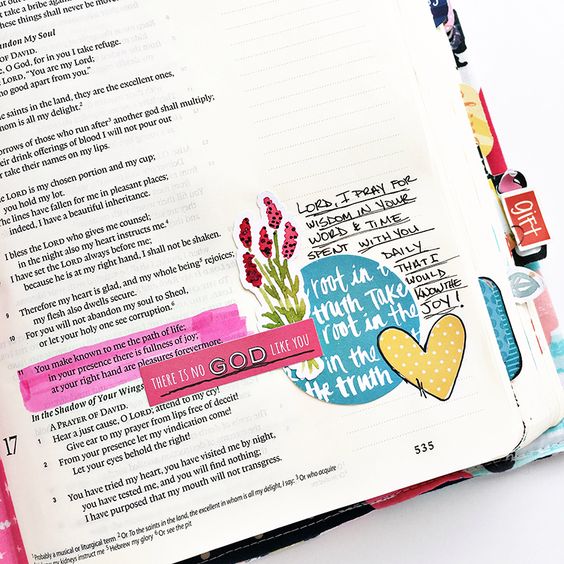 take a bribe against
these things shall never be moved.
Abandon My Soul
OF DAVID.
O God, for in you I take refuge.
LORD, "You are my Lord;
no good apart from you."
the saints in the land, they are the excellent ones,
whom is all my delight.²
sorrows of those who run after³ another god shall multiply;
their drink offerings of blood I will not pour out
or take their names on my lips.
The LORD is my chosen portion and my cup;
you hold my lot.
The lines have fallen for me in pleasant places;
indeed, I have a beautiful inheritance.
I bless the LORD who gives me counsel;
in the night also my heart instructs me.⁴
I have set the LORD always before me;
because he is at my right hand, I shall not be shaken.
9 Therefore my heart is glad, and my whole being⁵ rejoices;
my flesh also dwells secure.
10 For you will not abandon my soul to Sheol,
or let your holy one see corruption.⁶
11 You make known to me the path of life;
in your presence there is fullness of joy;
at your right hand are pleasures forevermore.
In the Shadow of Your Wings
17 A PRAYER OF DAVID.
1 Hear a just cause, O LORD; attend to my cry!
Give ear to my prayer from lips free of deceit!
2 From your presence let my vindication come!
Let your eyes behold the right!
3 You have tried my heart, you have visited me by night,
you have tested me, and you will find nothing;
I have purposed that my mouth will not transgress.
¹ Probably a musical or liturgical term ² Or To the saints in the land, the excellent in whom is all my delight, I say: ³ Or who acquire
my kidneys instruct me ⁵ Hebrew my glory ⁶ Or see the pit
LORD, I PRAY FOR
WISDOM IN YOUR
WORD & TIME
SPENT WITH YOU
DAILY
THAT I
WOULD
KNOW THE
JOY!
root in t
truth Take
root in the
in the
the truth
THERE IS NO GOD LIKE YOU
535
gift